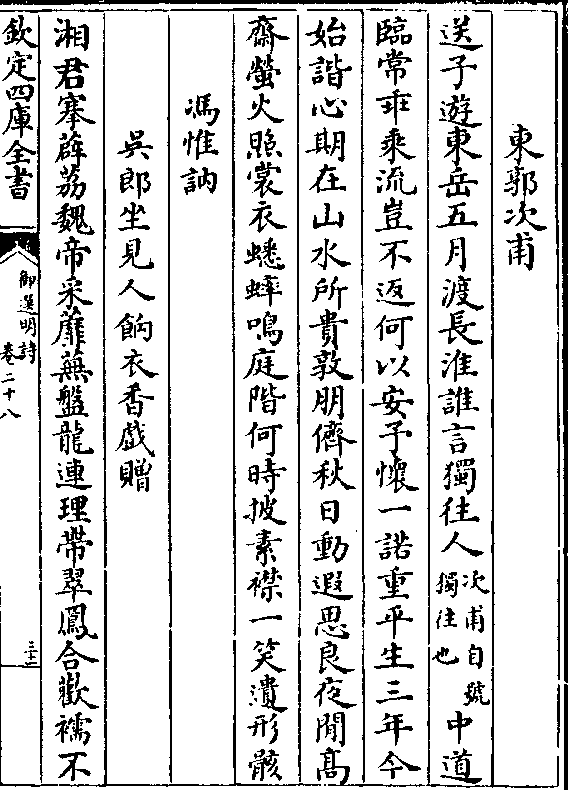 東郭次甫
送子遊東岳五月渡長淮誰言獨往人次甫自號獨往也中道
臨常乖乘流豈不返何以安予懷一諾重平生三年今
始諧心期在山水所貴敦朋儕秋日動遐思良夜閒高
齋螢火照裳衣蟋蟀鳴庭階何時披素襟一笑遺形骸
馮惟訥
吳郎坐見人餉衣香戲贈
湘君搴薜荔魏帝采蘼蕪盤龍連理帶翠鳳合歡襦不
欽定四庫全書
御選明詩
卷二十八
三十二